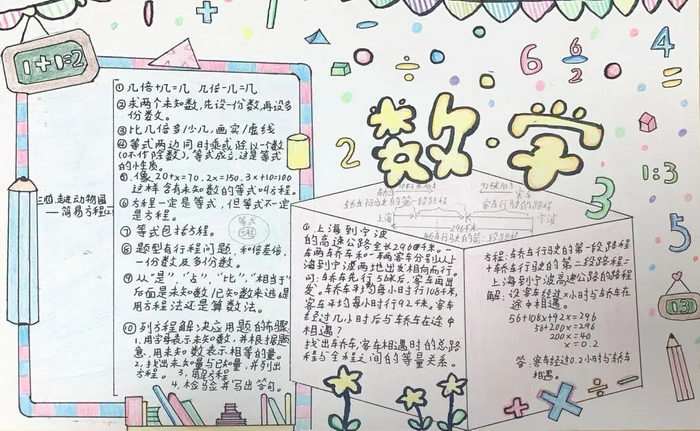 1+1=2
数学
三四.走进动物园
—简易方程(二)
①几倍+几=几 几倍-几=几
②求两个未知数,先设一份数,再设多
份数。
③比几倍多少几,画实/虚线
④等式两边同时乘或除以一个数
(0不作除数),等式成立,这是等式
的性质。
⑤像 20+x=70、2x=150、3x+10=100
这样含有未知数的等式叫方程。
⑥方程一定是等式,但等式不一定
是方程。
⑦等式包括方程。
等式
方程
⑧题型有行程问题,和倍差倍,
一份数及多份数。
⑨从“是”,“占”,“比”,“相当于”
后面是未知数/已知数来选择
用方程法还是算数法。
⑩列方程解决应用题的步骤
1.用字母表示未知数,并根据题
意,用未知数表示相等的量。
2.找出未知量与已知量,并列出
方程。 3.解方程
4.检验并写出答句。
上海
宁波
296千米
①上海到宁波
的高速公路全长296千米。
在两车轿车和一辆客车分别从上
海到宁波两地出发相向而行。
轿车平均每小时行108千米,
客车平均每小时行92千米。客车
经过几小时后与轿车在途中
相遇?
找出轿车,客车相遇时的总路
程与全程之间的等量关系。
方程:轿车行驶的第一段路程
+轿车行驶的第二段路程=
上海到宁波高速公路的路程
解:设客车经过x小时与轿车在
途中相遇。
56+108x+92x=296
56+200x=296
200x=40
x=0.2
答:客车经过0.2小时与轿车
相遇。
6
6
2
4
2
3
1:3